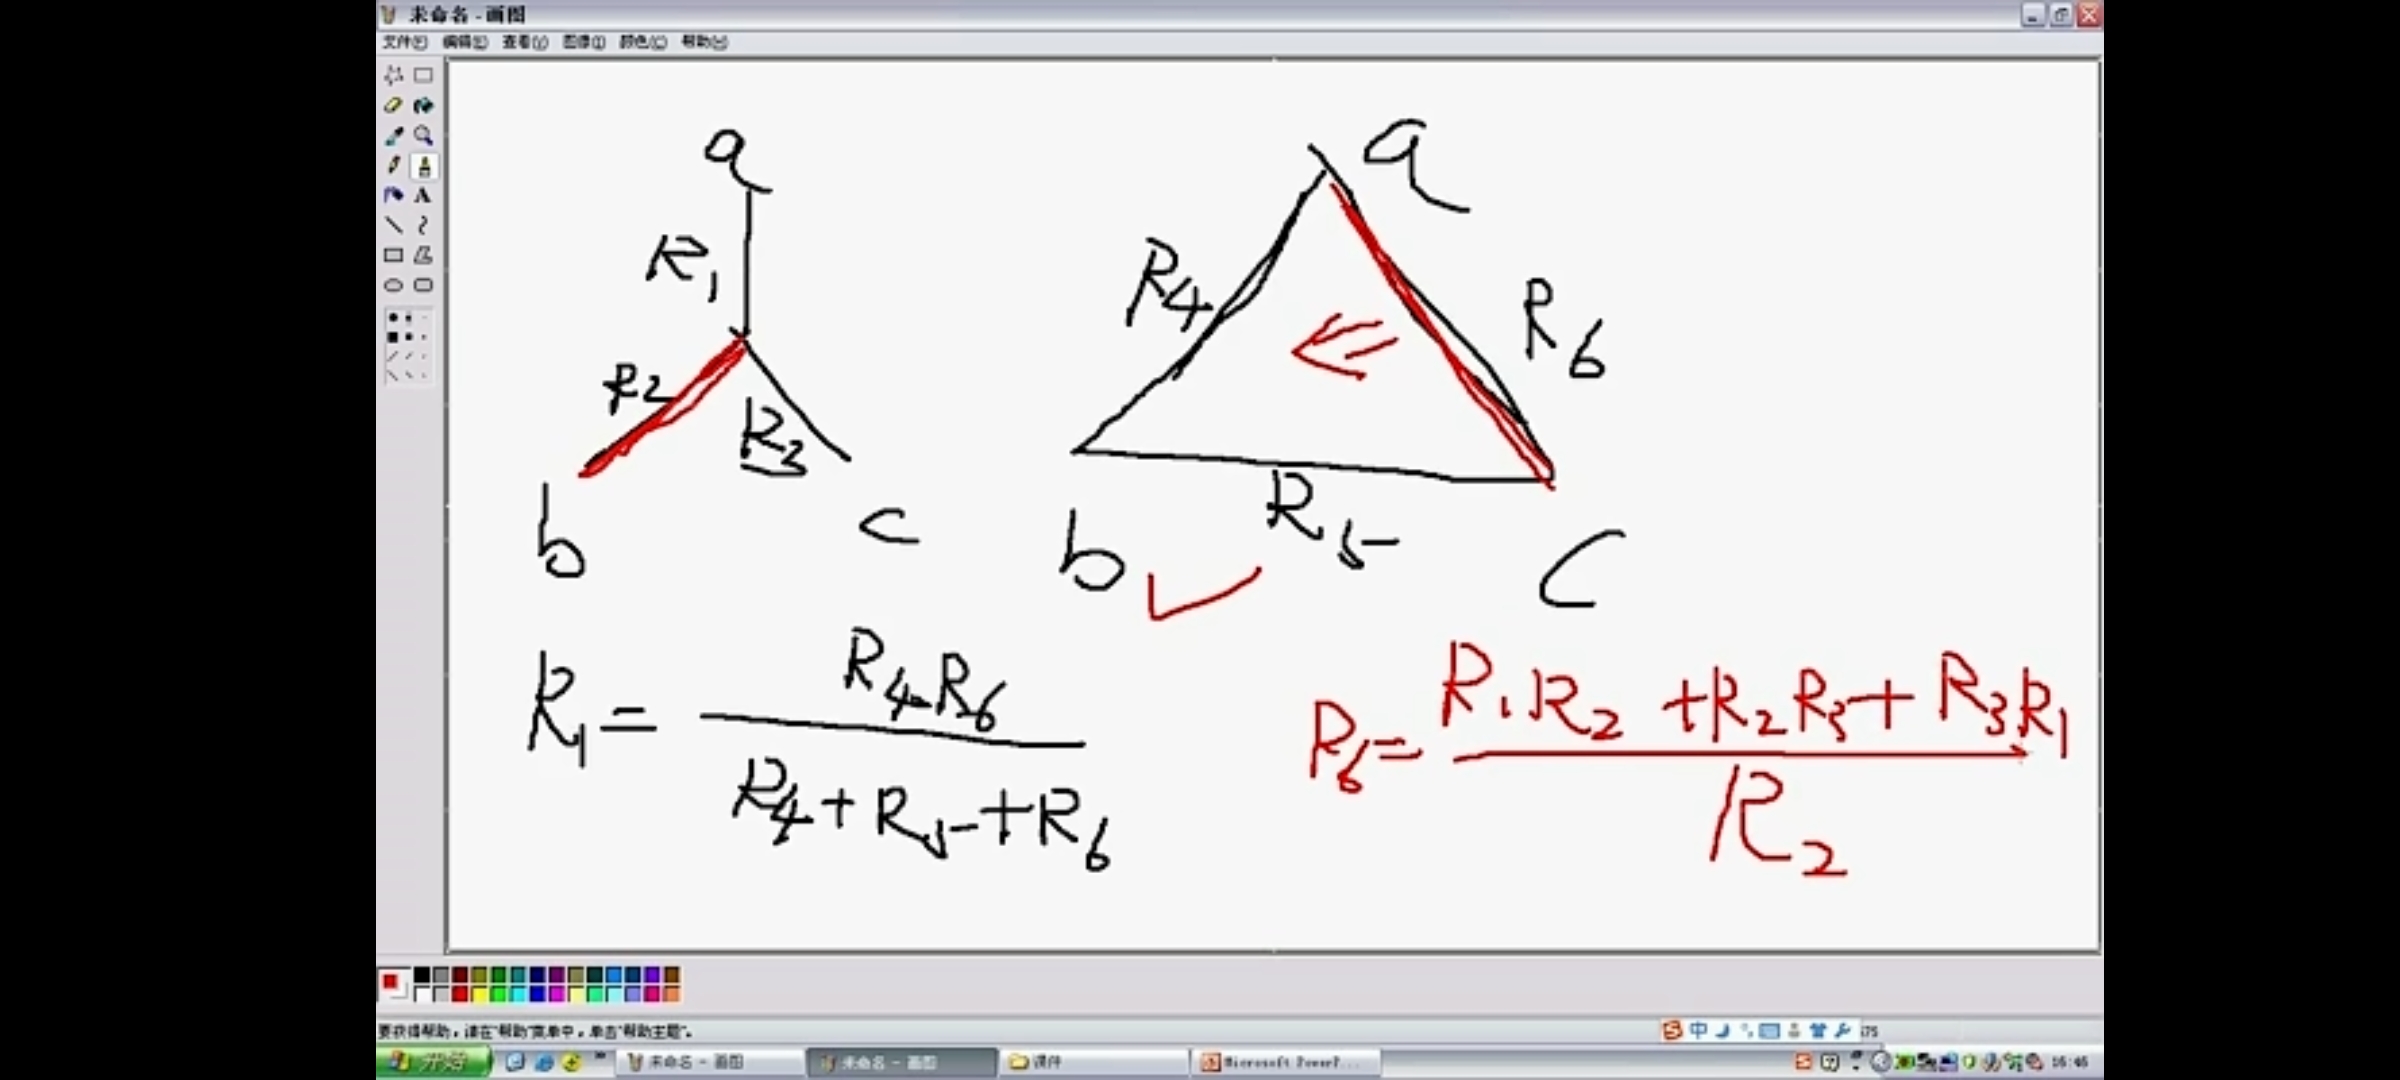 未命名 - 画图
文件(F) 编辑(E) 查看(V) 图像(I) 颜色(C) 帮助(H)
a
a
R1
R4
R6
R2
R3
R5
b
c
b
C
R1 = R4·R6 / R4+R5+R6
R6 = R1·R2 + R2R3 + R3R1 / R2
要获得帮助，请在“帮助”菜单中，单击“帮助主题”。
中
开始
未命名 - 画图
未命名 - 画图
课件
Microsoft PowerP...
16:46